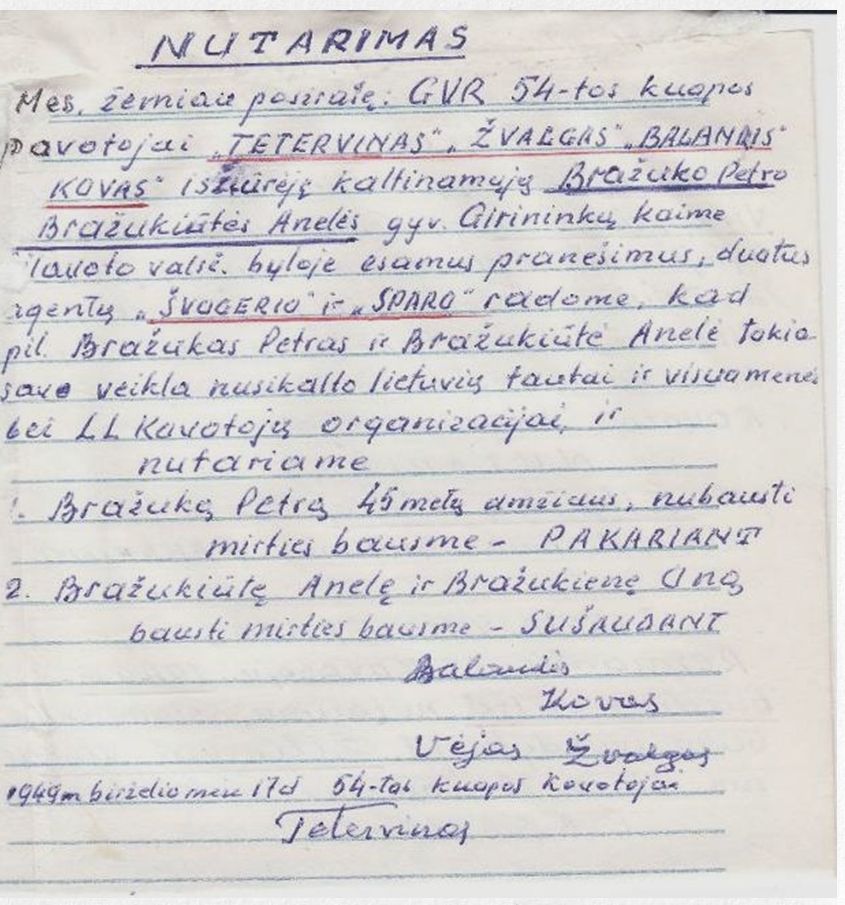 NUTARIMAS
Mes, žemiau pasirašę: GVR 54-tos kuopos
pavotojai „TETERVINAS“, ŽVALGAS“ „BALANDIS“
KOVAS“ išžiūrėję kaltinamąją Bražuko Petro
Bražukiūtės Anelės gyv. Girininkų kaime
valsč. byloje esamus pranešimus, duotus
agentų „ŠVOGERIO“ ir „SPARO“ radome, kad
pil. Bražukas Petras ir Bražukiūtė Anelė tokia
savo veikla nusikalto lietuvių tautai ir visuomenei
bei LL Kovotojų organizacijai, ir
nutariame
1. Bražuką Petrą 45 metų amžiaus, nubausti
mirties bausme - PAKARIANT
2. Bražukiūtę Anelę ir Bražukienę Oną
bausti mirties bausme - SUŠAUDANT
Balandis
Kovas
Vėjas Žvalgas
1949m birželio men 17d 54-tos kuopos Kovotojai
Tetervinas